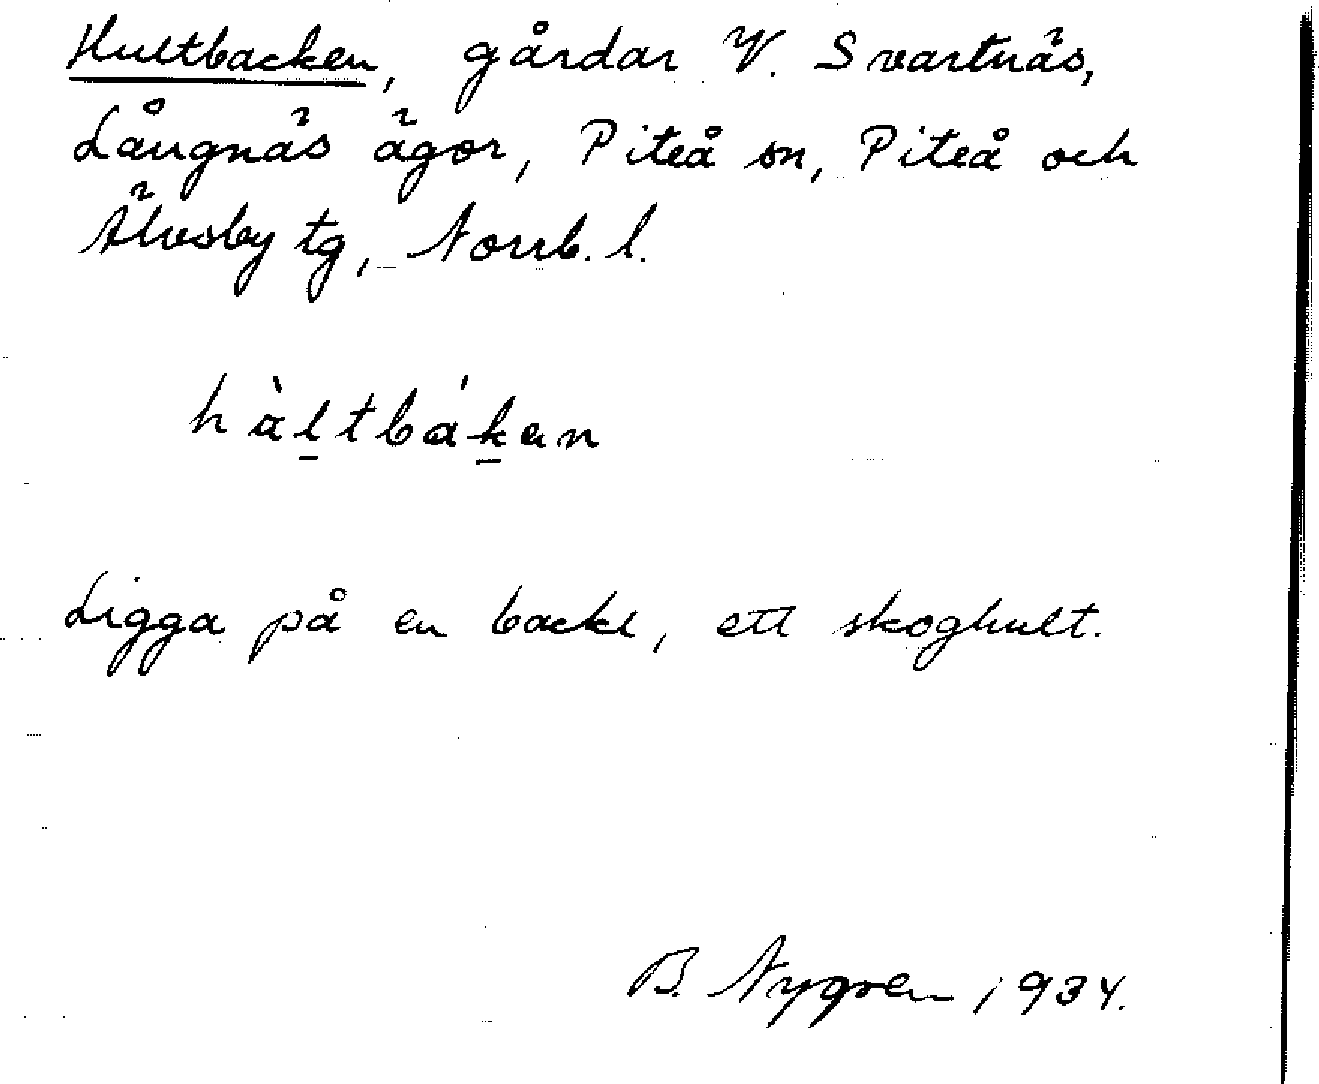 Hultbacken, gårdar V. Svartnäs,
Långnäs ägor, Piteå sn, Piteå och
Älvsby tg, Norrb. l.
hàltbákan
Ligga på en backe, ett skoghult.
B. Nygren 1934.